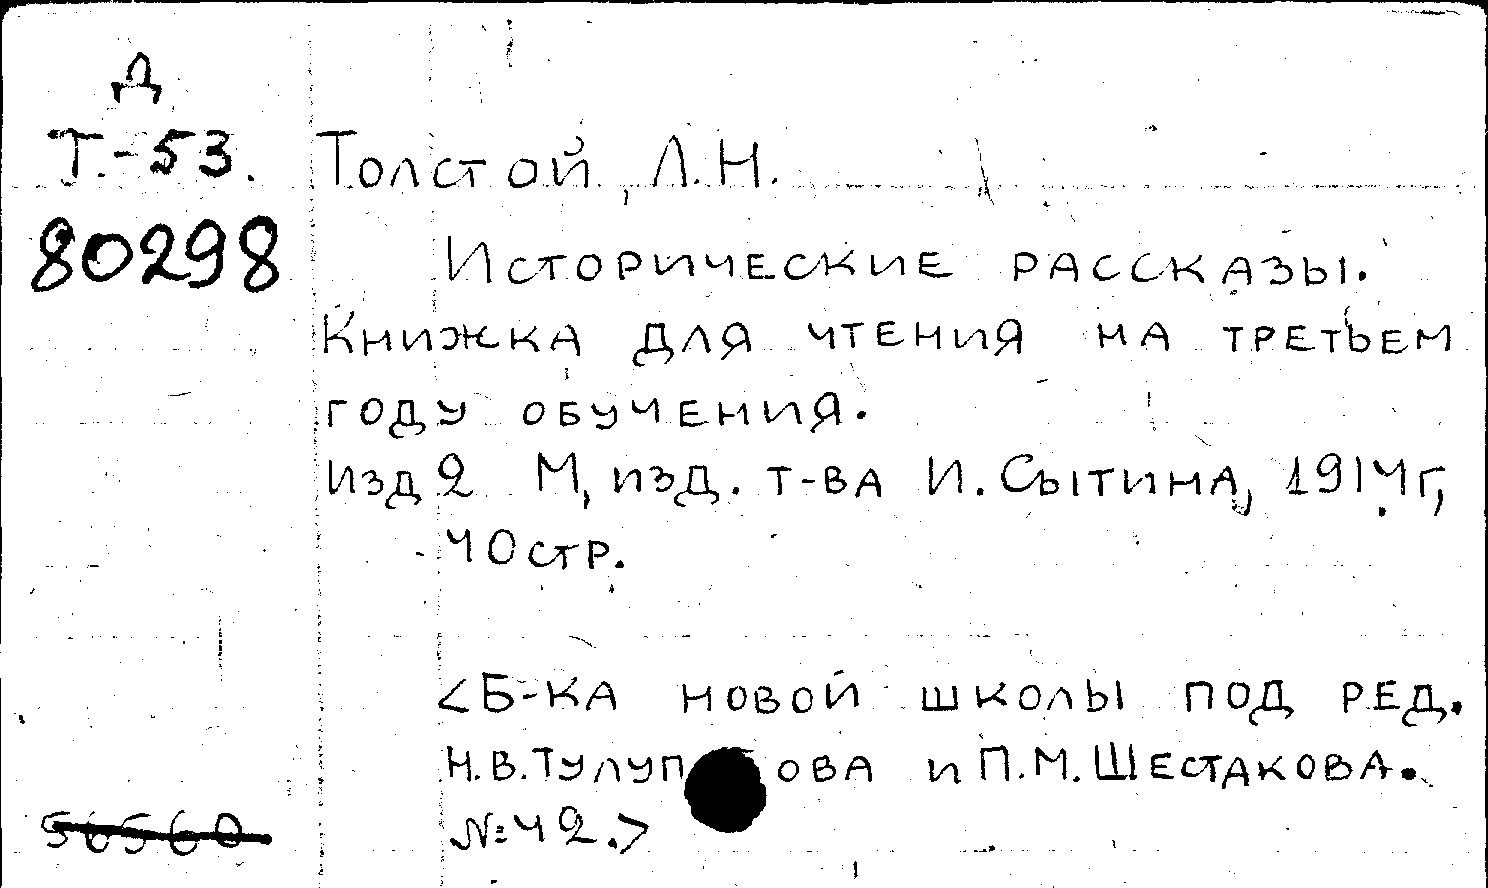 Д
Т.-53.
Толстой, Л.Н.
80298
Исторические рассказы.
Книжка для чтения на третьем
году обучения.
Изд 2 М, изд. т-ва И. Сытина, 1914г,
40стр.
<Б-ка новой школы под ред.
Н.В.Тулупова и П.М.Шестакова.
№42.>
56560